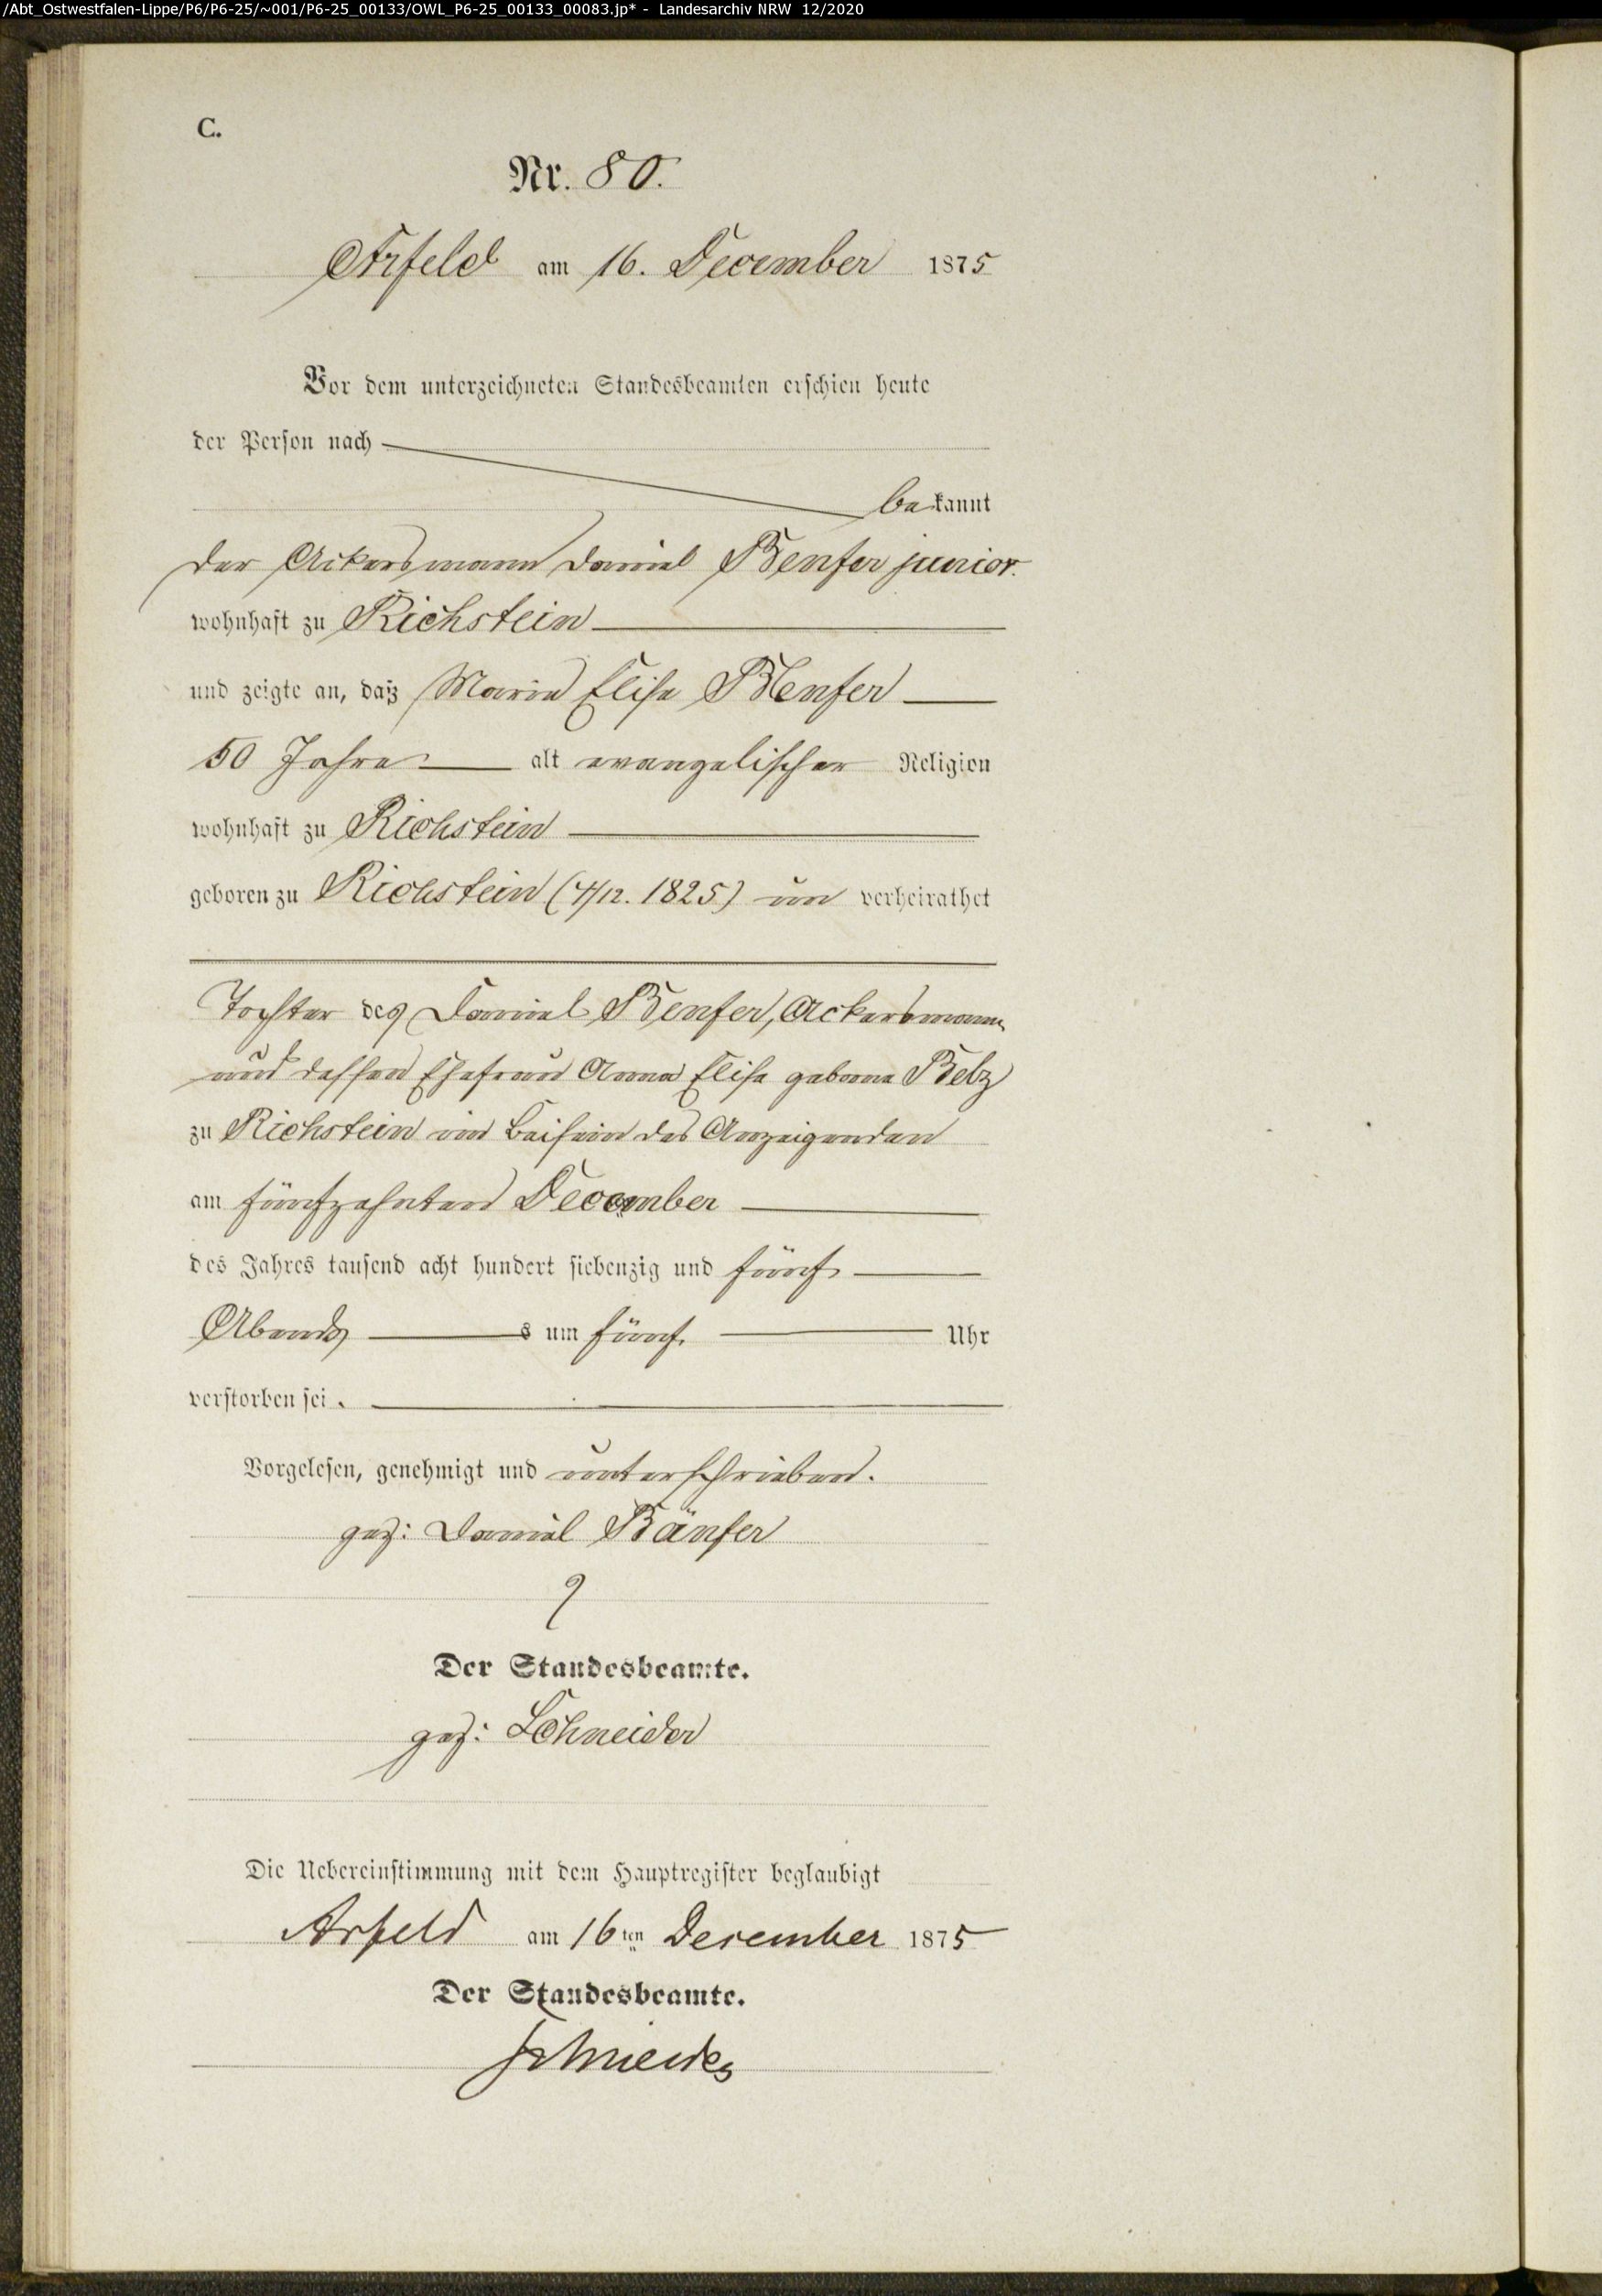 /Abt_Ostwestfalen-Lippe/P6/P6-25/~001/P6-25_00133/OWL_P6-25_00133_00083.jp* - Landesarchiv NRW 12/2020
C.
Nr. 80.
Arfeld am 16. December 1875
Vor dem unterzeichneten Standesbeamten erschien heute
der Person nach
bekannt
der Ackersmann Daniel Benfer junior.
wohnhaft zu Richstein
und zeigte an, daß Maria Elise Benfer
50 Jahre alt evangelischer Religion
wohnhaft zu Richstein
geboren zu Richstein (4/12. 1825) un verheirathet
Tochter des Daniel Benfer, Ackersmann
und dessen Ehefrau Anna Elise geborne Belz
zu Richstein im Beisein des Anzeigenden
am fünfzehnten December
des Jahres tausend acht hundert siebenzig und fünf
Abends s um fünf Uhr
verstorben sei.
Vorgelesen, genehmigt und unterschrieben.
gez: Daniel Bänfer
Der Standesbeamte.
gez: Schneider
Die Uebereinstimmung mit dem Hauptregister beglaubigt
Arfeld am 16ten December 1875
Der Standesbeamte.
Schneider